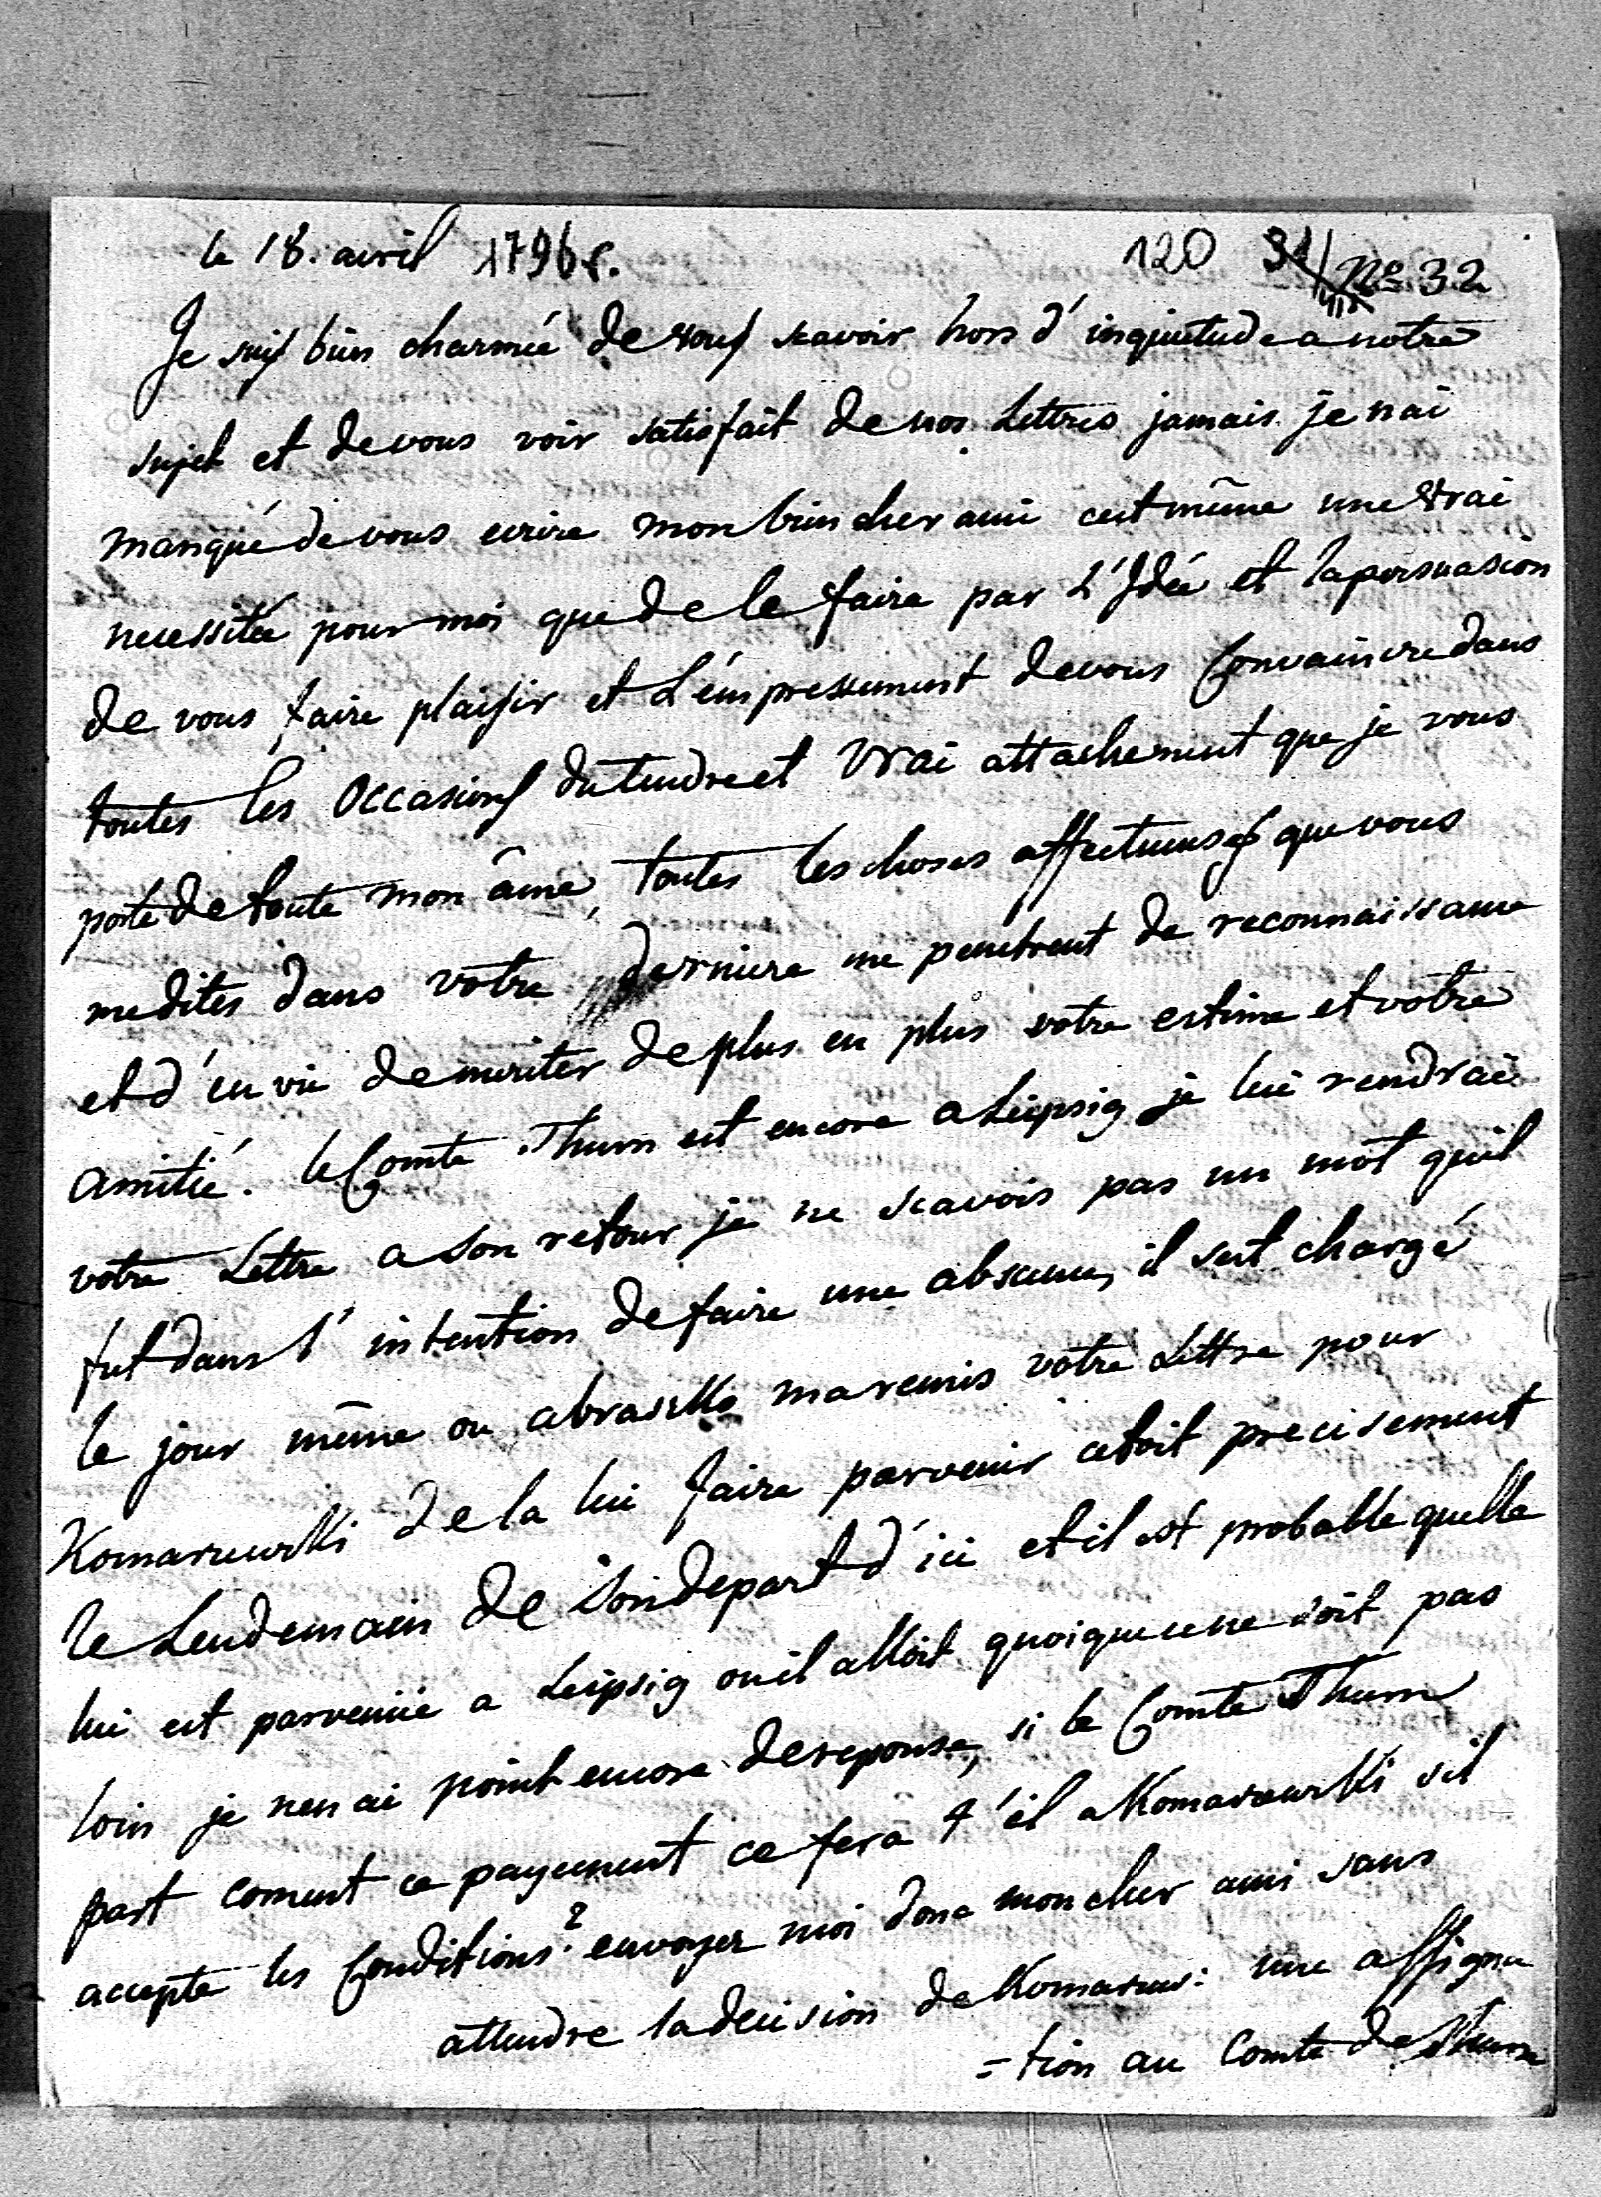 le 18. avril 1796 r. 120 31 No 32
Je suis bien charmée de vous scavoir hors d'inquietude a notre
sujet et de vous voir satisfait de nos Lettres jamais je nai
manqué de vous ecrire mon bien cher ami cest même une vrai
necessitée pour moi que de le faire par L'Idée et la persuasion
de vous faire plaisir et L'émpressement de vous Convaincre dans
toutes les Occasions du tendre et vrai attachement que je vous
porte de toute mon âme, toutes les choses affectueuses que vous
me dites dans votre derniere me penetrent de reconnaissance
et d'envie de meriter de plus en plus votre estime et votre
amitié. le Comte Thurn est encore a Leipsig je lui rendrai
votre Lettre a son retour je ne scavois pas un mot quil
fut dans l'intention de faire une absence, il sest chargé
le jour même ou abramelle maremis votre Lettre pour
Komarzewski de la lui faire parvenir cetoit precisement
le Lendemain de son depart d'ici et il est probable quelle
lui est parvenüe a Leipsig ou il alloit quoique ce ne soit pas
loin je nen ai point encore de reponse, si le Comte Thurn
part coment ce payement ce fera t'il a Komarzewski sil
accepte les Conditions? envoyez moi donc mon cher ami sans
attendre la decision de Komarzew: une assigna
=tion au Comte de Thurn